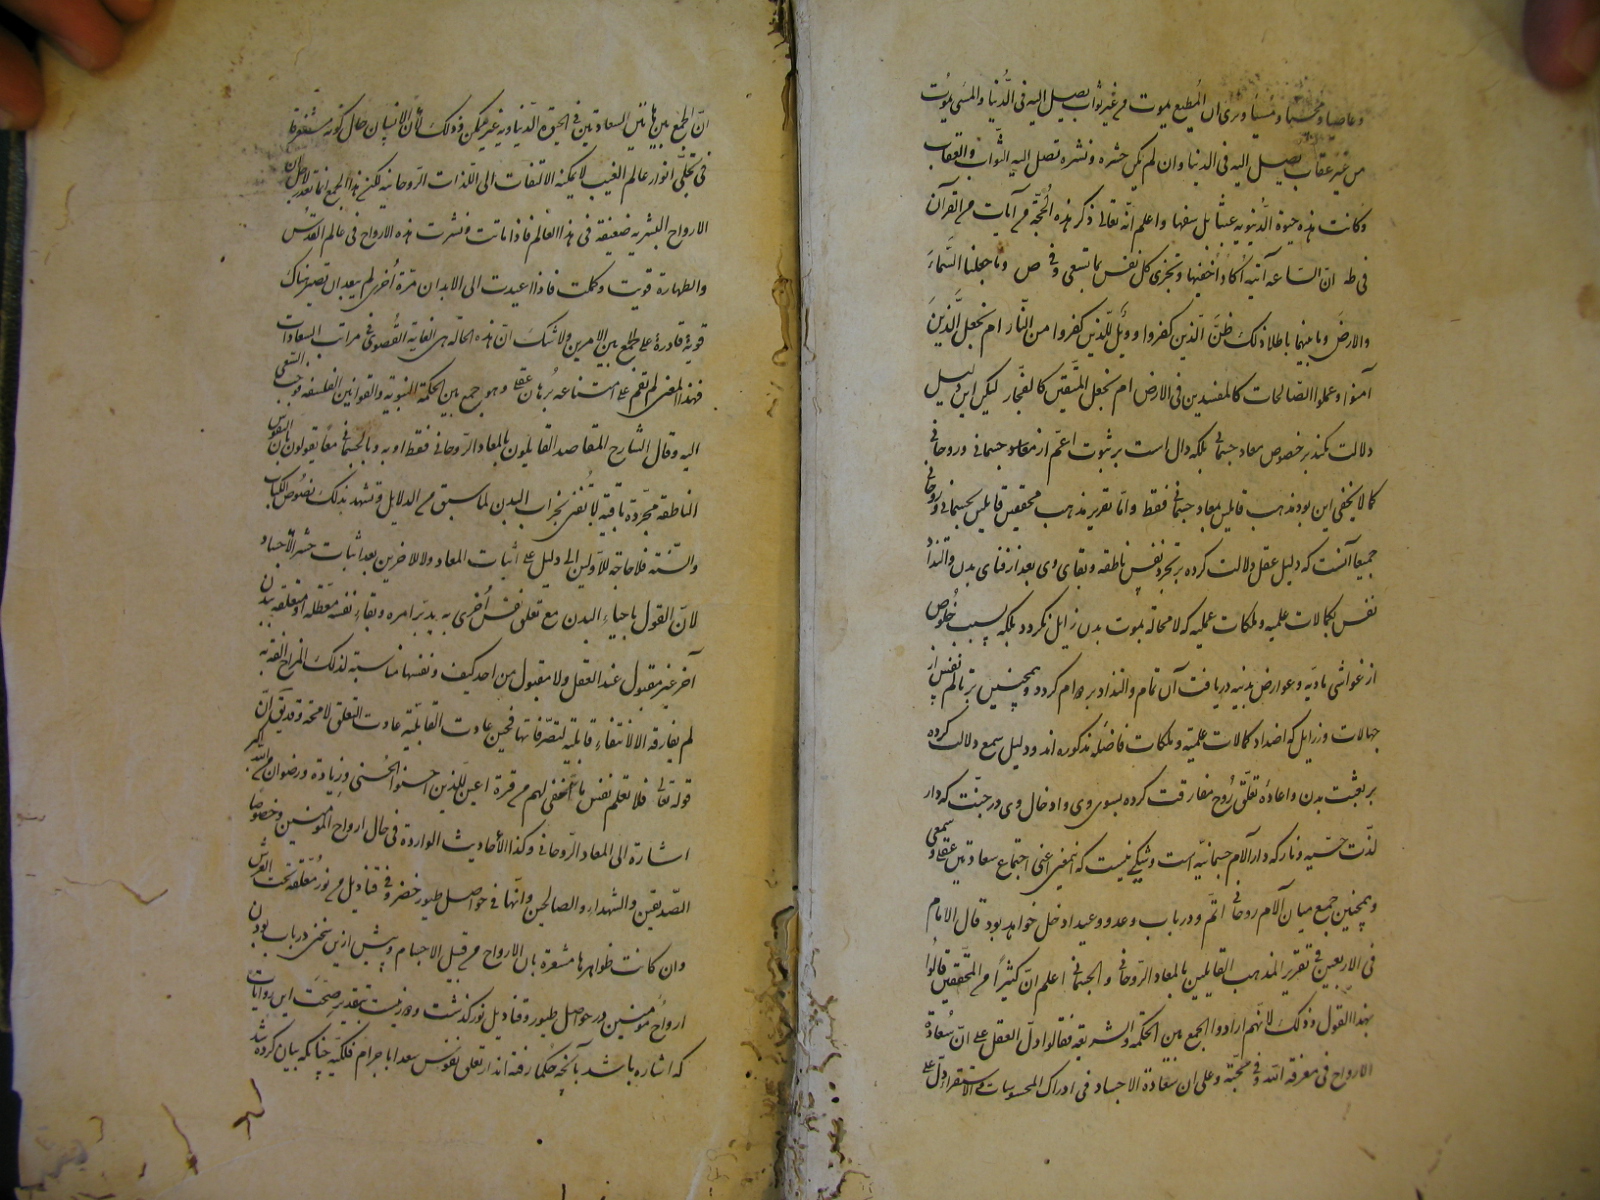 وعاصیا ومحسنا ومسیأ ونری ان المطیع یموت من غیر ثواب یصل الیه فی الدُّنیا والمسی یموت
من غیر عقاب یصل الیه فی الدنیا وان لم یکن حشره ونشره تصل الیه الثواب والعقاب
وکانت هذه حیوة الدنیویه عبثا بل سفها واعلم انّه تعالی ذکر هذه الحُجّة فی آیات من القرآن
فی طه ان السّاعه آتیه أکاد أخفیها وتجزی کل نفس بما تسعی وفی ص وما جعلنا السّماءَ
والارضَ وما بینهما باطلا ذلک ظنَّ الّذین کفروا وویلٌ للّذین کفروا من النّار ام نجعل الّذینَ
آمنوا وعملوا الصّالحات کالمفسدین فی الارض ام نجعل المتّقین کالفجّار لیکن این دلیل
دلالت نمکند بر خصوص معاد جسمانی بلکه دال است بر ثبوت اعم از معاد جسمانی وروحانی
کما لا یخفی این بود مذهب قائلین بمعاد جسمانی فقط وامّا تقریر مذهب محققین قایلین بجسمانی وروحانی
جمیعا آنست که دلیل عقل دلالت کرده بر تجرد نفس ناطقه وبقای وی بعد از فنای بدن والتذاذ
نفس بکمالات علمیه وملکات عملیه که لا محاله بموت بدن زایل نکردد بلکه بسبب خلوص
از غواشی مادیه وعوارض بدنیه دریافت آن تمام والتذاذ بر دوام کردد وهمچنین بر تالم نفس از
جهالات ورزایل که اضداد کمالات علمیّه وملکات فاضله مذکوره اند ودلیل سمع دلالت کرده
بر بعث بدن واعادهٔ تعلّق رُوح مفارقت کرده بسوی وی وادخال وی در جنّت که دار
لذّت حسّیه ونار که دار آلام جسمانیّه است وشکی نیست که اینمعنی اعنی اجتماع سعادتین عقلی وسمعی
وهمچنین جمع میان آلام روحانی اتمّ ودر باب وعد ووعید ادخل خواهد بود قال الامام
فی الاربعین فی تقریر المذهب القایلین بالمعاد الرّوحانی والجسمانی اعلم انّ کثیراً من المحقّقین قالوا
بهذا القول وذلک لانّهم ارادوا الجمع بین الحکمة والشریعة فقالوا دلّ العقل علی انّ سعادة
الارواح فی معرفة الله وفی محبّته وعلی ان سعادة الاجساد فی ادراک المحسوسات والاستقراء دلّ علی
انّ الجمع بین هاتین السعادتین فی الحیوة الدّنیاویة غیر ممکن وذلک لانّ الانسان حال کونه مستغرقا
فی تجلّی انوار عالم الغیب لا یمکنه الالتفات الی اللّذات الرّوحانیه لیکن هذا الجمع انما تعذر لاجل ان
الارواح البشریه ضعیفة فی هذا العالم فاذا ماتت ونشرت هذه الارواح فی عالم القدْس
والطهارة قویت وکملت فاذا اعیدت الی الابدان مرّة اُخری لم یبعد ان تصیر هناک
قویة قادرة علی الجمع بین الامرین ولا شک انّ هذه الحالة هی الغایة القُصوی فی مراتب السعادات
فهذا المعنی لم تقم علی امتناعه بُرهان عقلی وهو جمع بین الحکمة النبویّة والقوانین الفلسفه فوجب السّعی
الیه وقال الشارح المقاصد القایلون بالمعاد الرّوحانی فقط او به وبالجسمانی معا یقولون بان النفوس
الناطقة مجرّدة باقیة لا تُفنی بخراب البدن لما سبق من الدلایل وتشهد بذلک نصُوص الکتاب
والسّنة فلا حاجة للاوّلین الی دلیل علی اثبات المعاد ولا للاخرین بعد اثبات حشر الاجساد
لانّ القول باحیاء البدن مع تعلق نفس اُخری به یدبّر امره وبقاء نفسه معطّلة او متعلقة ببدن
آخر غیر مقبول عند العقل ولا مقبول من احد کیف ونفسها مناسبة لذلک المزاج الفة به
لم یفارقه الا لانتفاء قابلیة لتصرّفاتها فحین عادت القابلیّة عادت التعلق لا محة وقد یق انّ
قوله تعالی فلا تعلم نفس ما اُخفی لهم من قرة اعین للّذین احسنوا الحُسنی وزیادة ورضوان من اللّه اکبر
اشارة الی المعاد الرّوحانی وکذا الأحادیث الواردة فی حال ارواح المؤمنین وخصوصًا
الصّدیقین والشهداء والصالحین وانّها فی حواصل طیور خضر وفی قنادیل من نور مُعلقة تحت العرش
وان کانت ظواهرها مشعرة بان الارواح من قبیل الاجسام وپیش ازین سخن در باب بودن
ارواح مؤمنین در حواصل طیور وقنادیل نور کذشت ودور نیست بتقدیر صحّت این روایات
که اشاره باشد بانچه حکما رفته اند از تعلق نفوس سعدا باجرام فلکیّه چنانکه بیان کرده شد